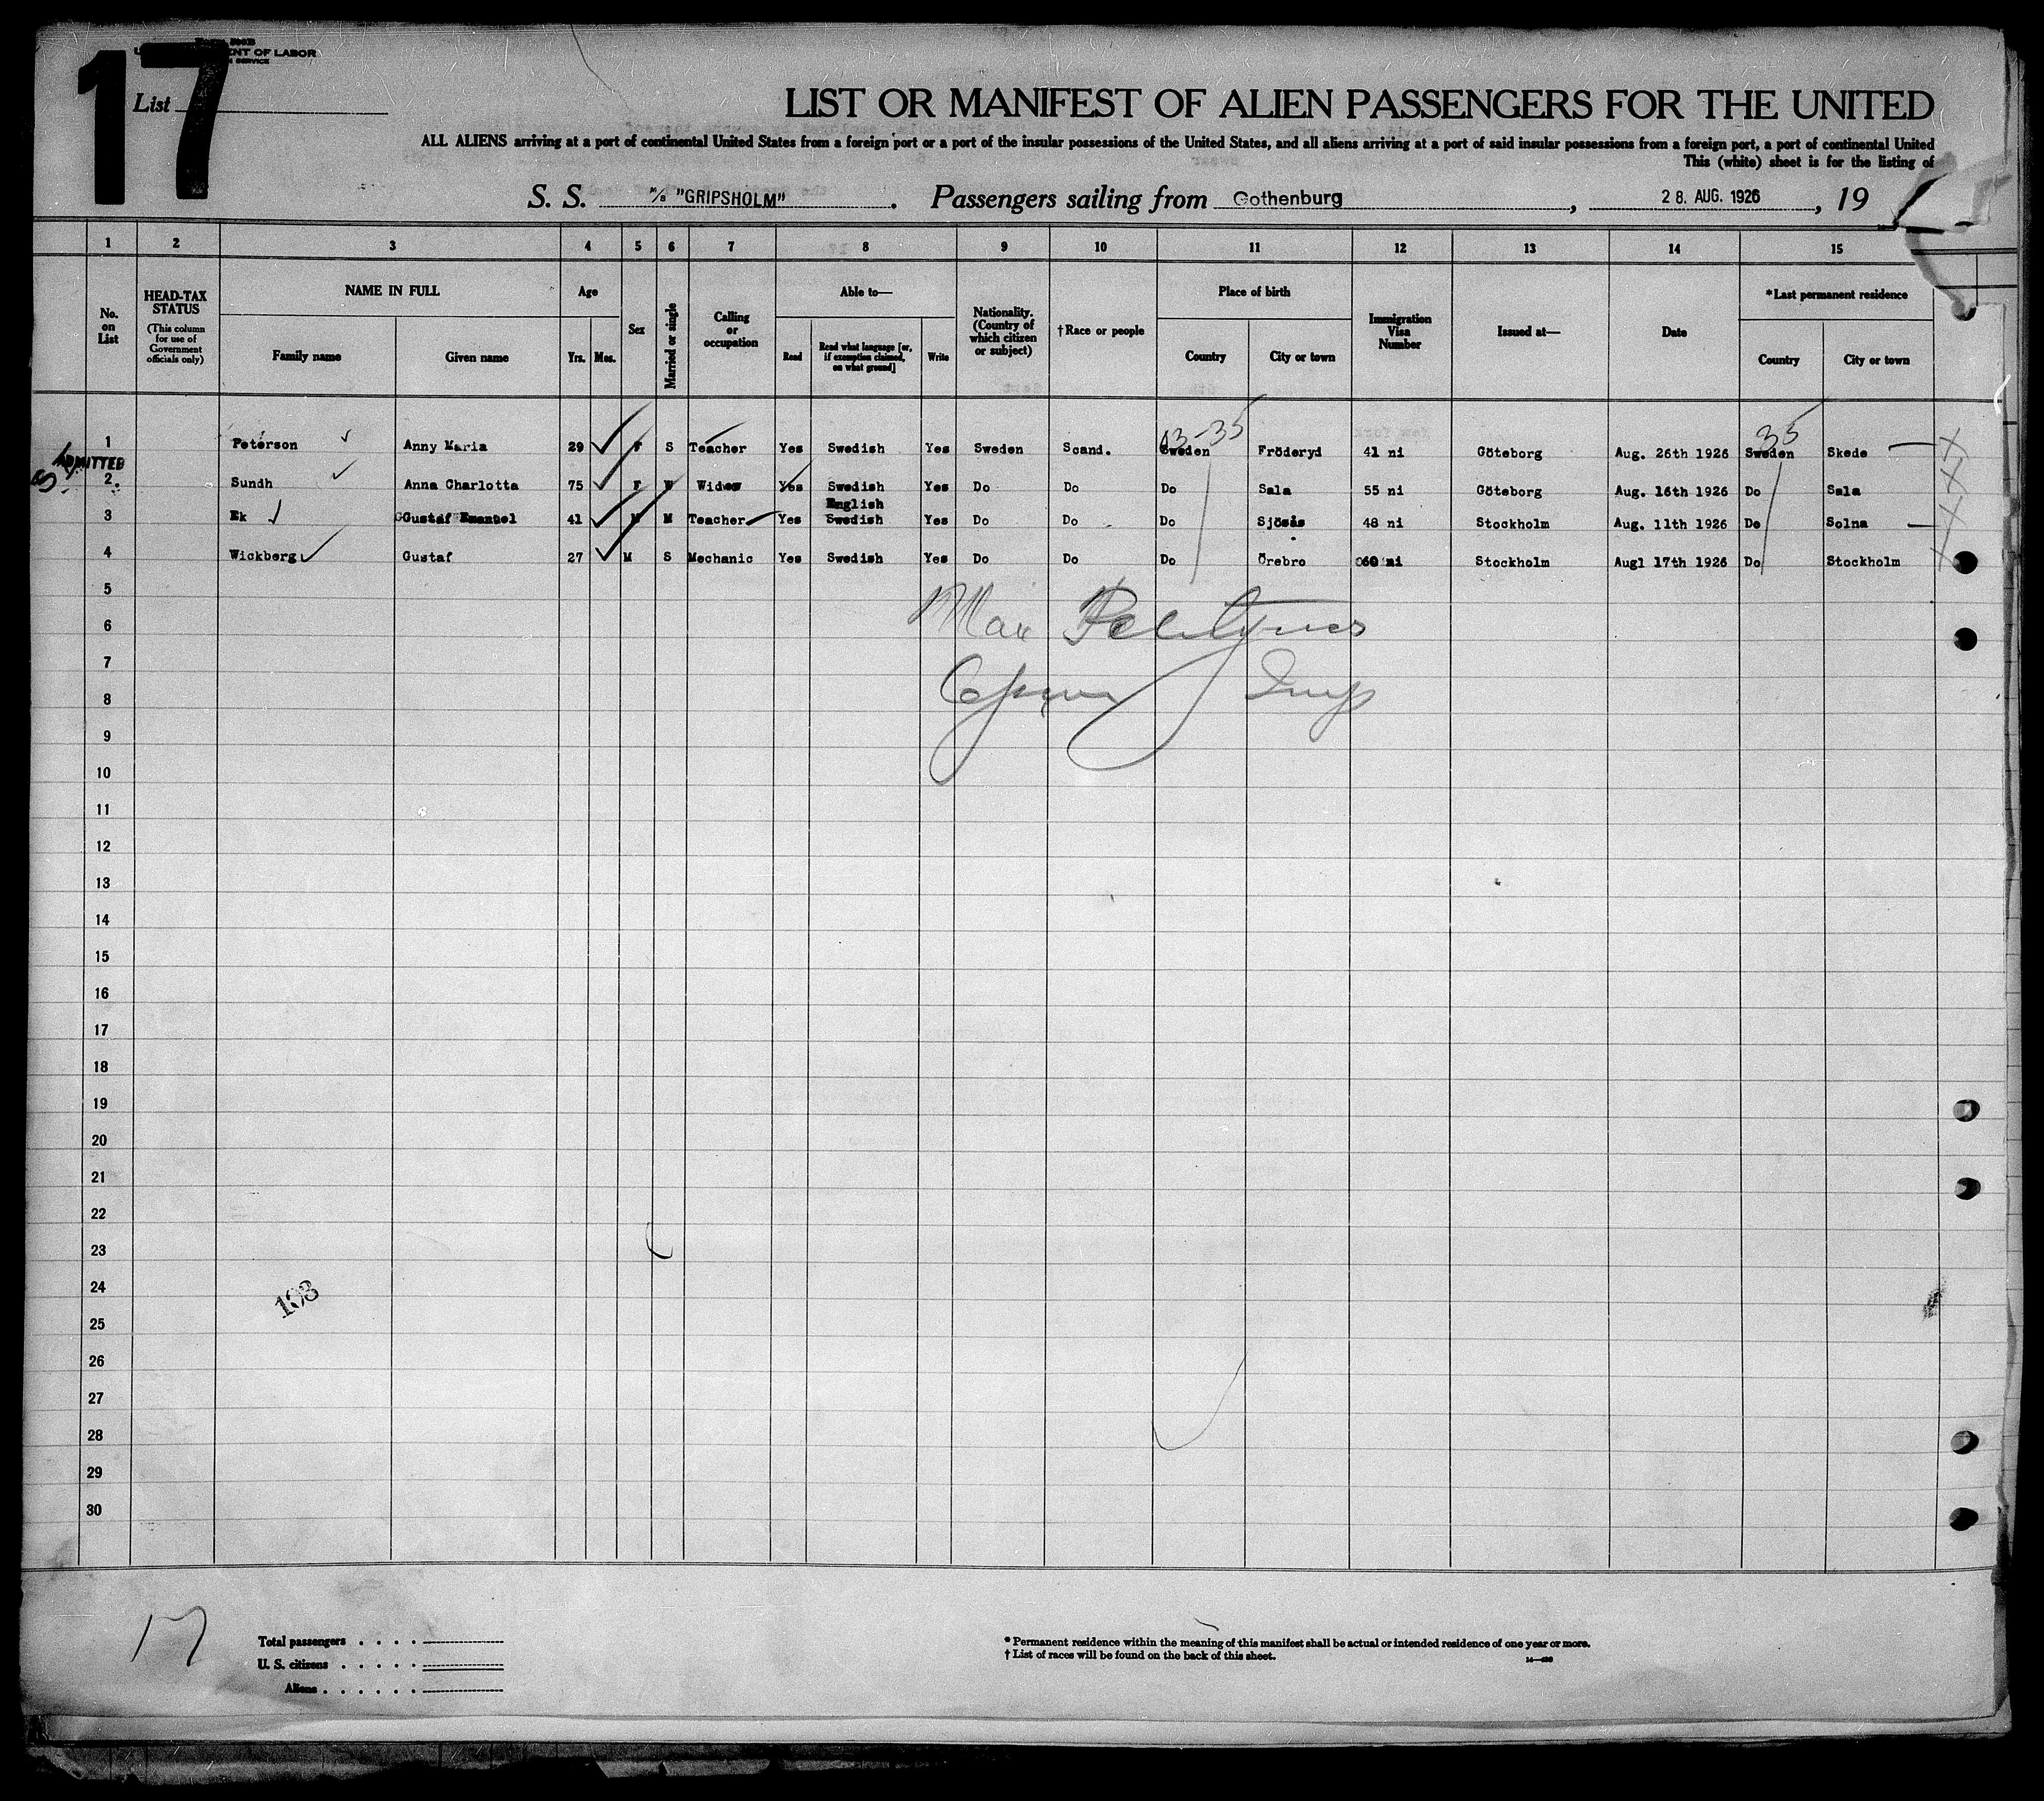 17
List
LIST OR MANIFEST OF ALIEN PASSENGERS FOR THE UNITED
ALL ALIENS arriving at a port of continental United States from a foreign port or a port of the insular possessions of the United States, and all aliens arriving at a port of said insular possessions from a foreign port, a port of continental United
This (white) sheet is for the listing of
S. S. M/S "GRIPSHOLM". Passengers sailing from Gothenburg, 28. AUG. 1926, 19
1 2 3 4 5 6 7 8 9 10 11 12 13 14 15
No. on List
HEAD-TAX STATUS (This column for use of Government officials only)
NAME IN FULL
Family name Given name
Age
Yrs. Mos.
Sex
Married or single
Calling or occupation
Able to—
Read Read what language [or, if exemption claimed, on what ground] Write
Nationality. (Country of which citizen or subject)
†Race or people
Place of birth
Country City or town
Immigration Visa Number
Issued at—
Date
*Last permanent residence
Country City or town
03-35 35
1 Peterson Anny Maria 29 F S Teacher Yes Swedish Yes Sweden Scand. Sweden Fröderyd 41 ni Göteborg Aug. 26th 1926 Sweden Skede
ADMITTED
2. Sundh Anna Charlotta 75 F W Widow Yes Swedish Yes Do Do Do Sala 55 ni Göteborg Aug. 16th 1926 Do Sala
English
3 Ek Gustaf Emanuel 41 M M Teacher Yes Swedish Yes Do Do Do Sjösås 48 ni Stockholm Aug. 11th 1926 Do Solna
4 Wickberg Gustaf 27 M S Mechanic Yes Swedish Yes Do Do Do Örebro 60 ni Stockholm Augl 17th 1926 Do Stockholm
5
6
7
8
9
10
11
12
13
14
15
16
17
18
19
20
21
22
23
24
108
25
26
27
28
29
30
17
Total passengers . . . .
U. S. citizens . . . . .
Aliens . . . . . .
* Permanent residence within the meaning of this manifest shall be actual or intended residence of one year or more.
† List of races will be found on the back of this sheet.